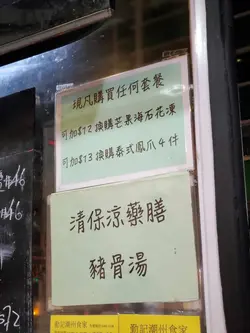 現凡購買任何套餐
可加$12換購芒果海石花凍
可加$13換購泰式鳳爪4件
清保涼藥膳
豬骨湯
勤記潮州食家
勤記潮州食家